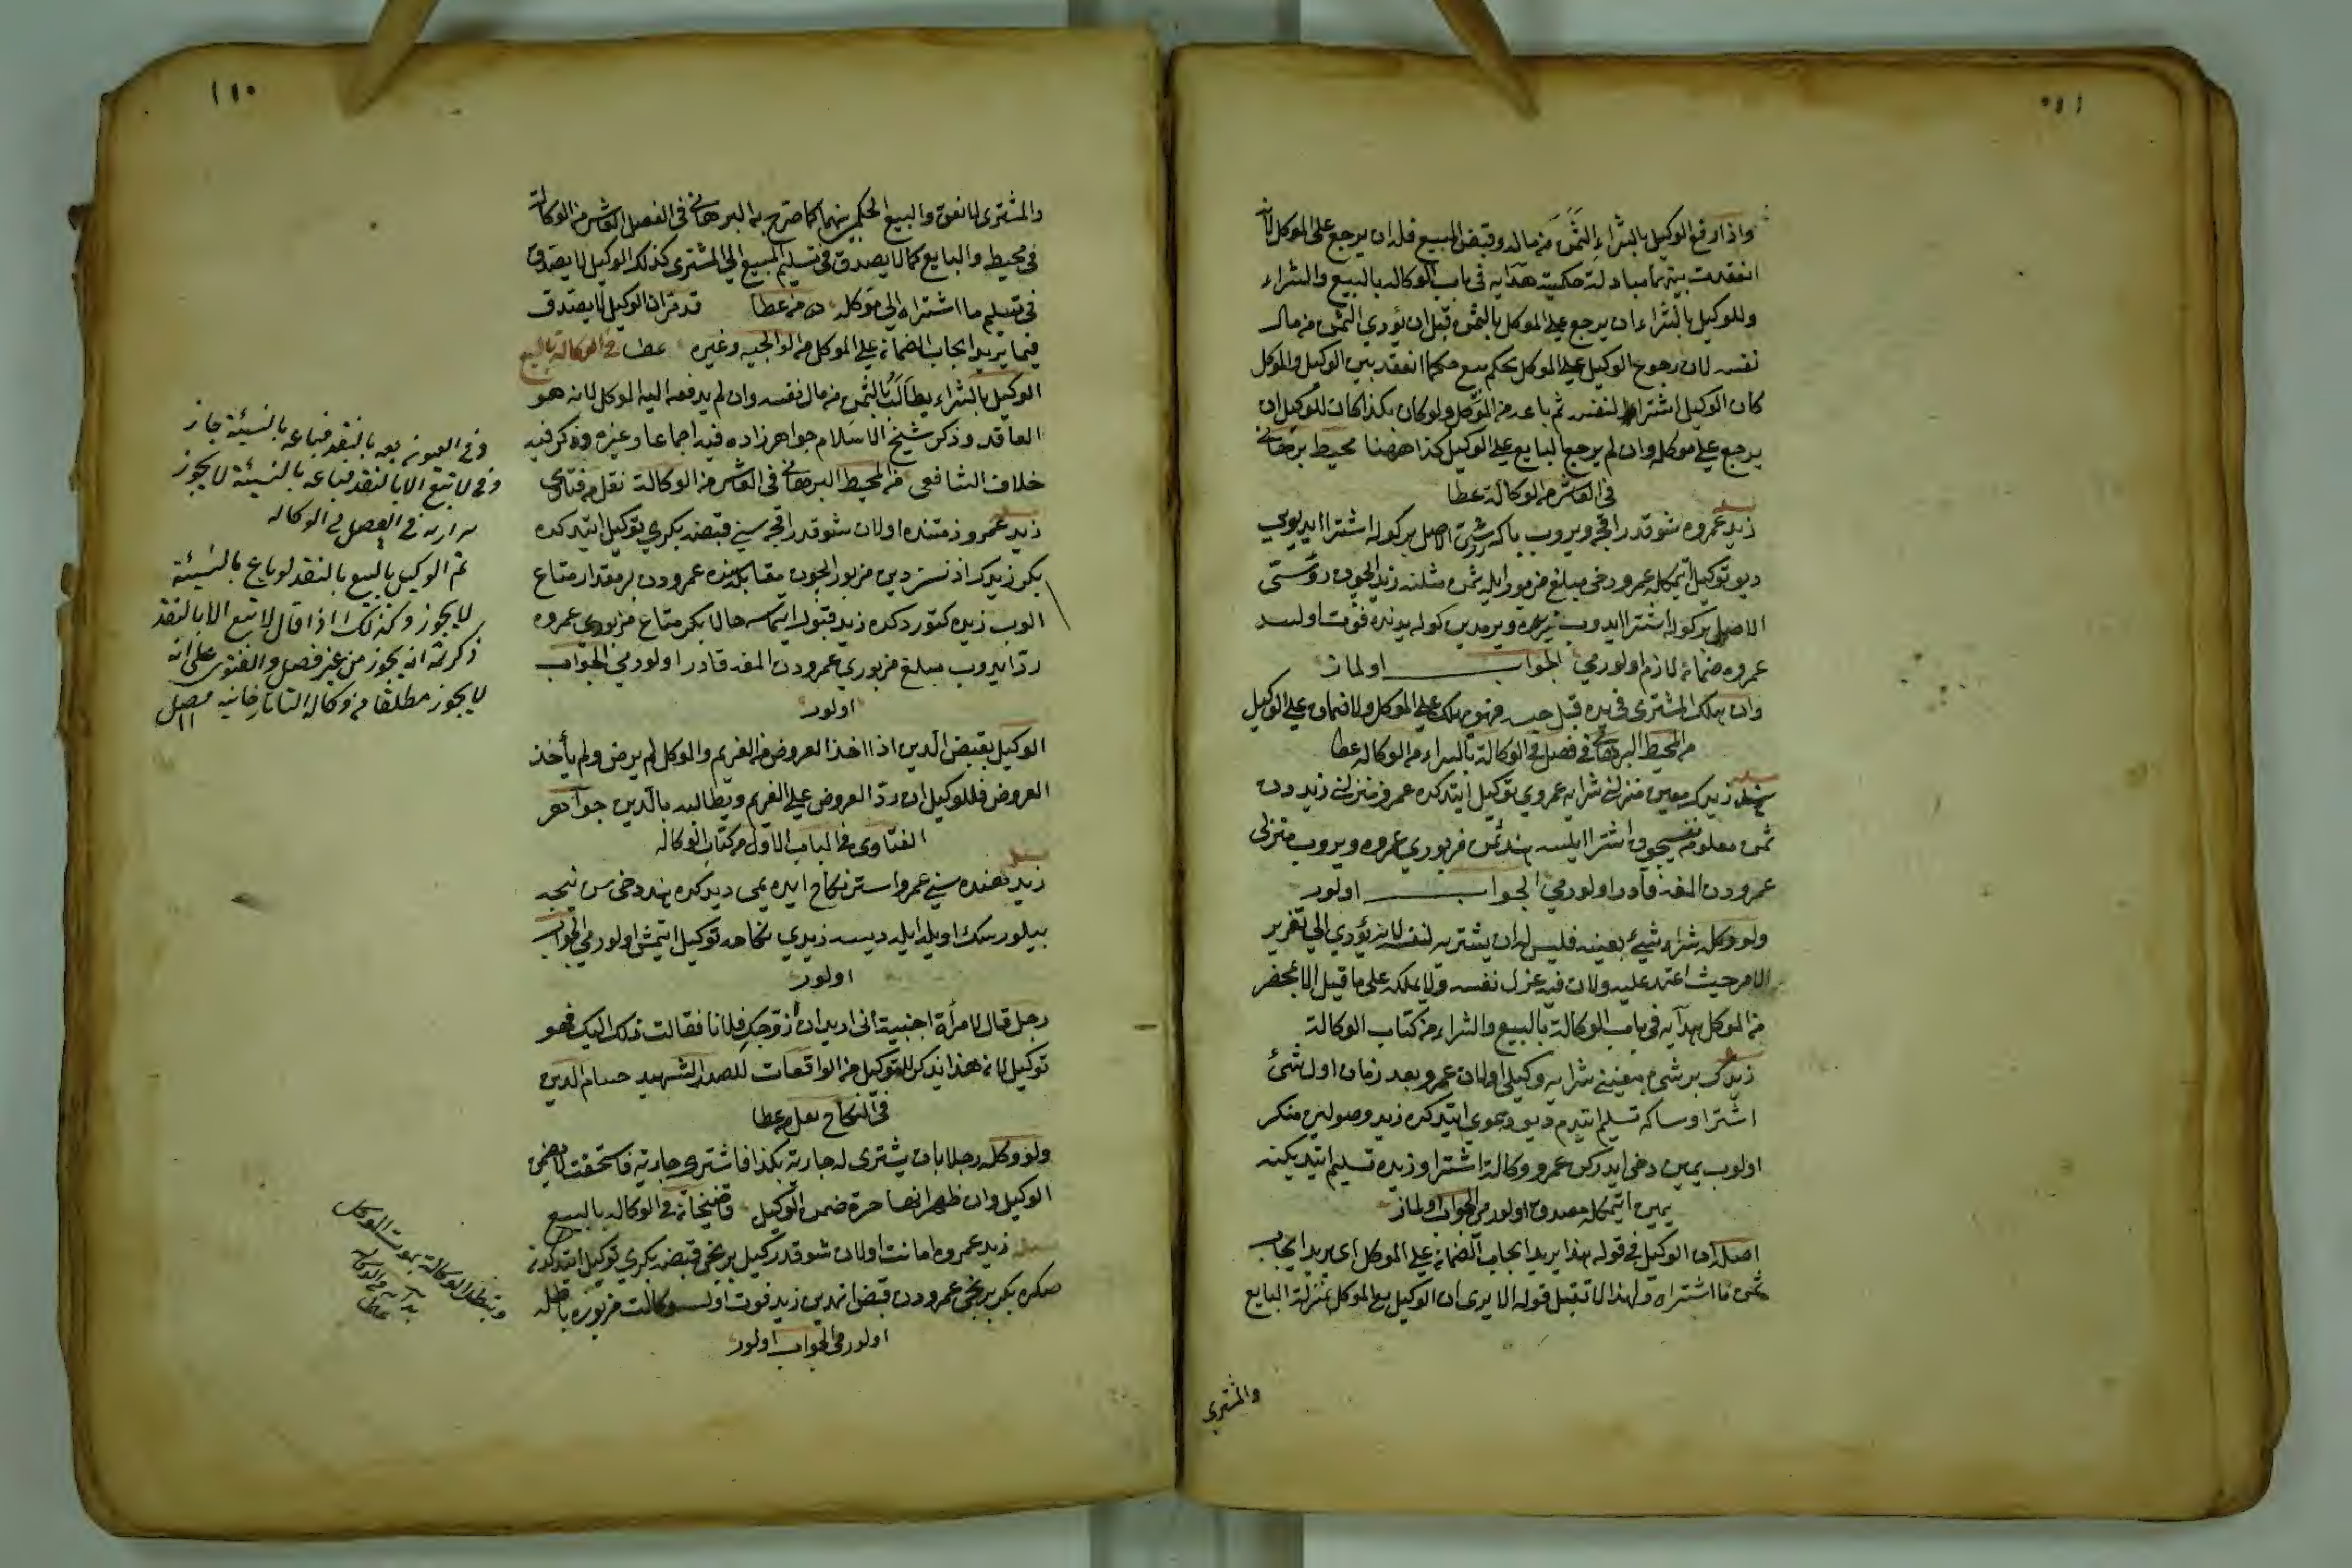 واذا دفع الوكيل بالشراء الثمن من ماله وقبض المبيع فله ان يرجع على الموكل لانه
انعقدت بينهما مبادلة حكمية هدايه في باب الوكاله بالبيع والشراء
وللوكيل بالشراء ان يرجع على الموكل بالثمن قبل ان يؤدي الثمن من مال
نفسه لان رجوع الوكيل على الموكل بحكم بيع حكما انعقد بين الوكيل والموكل
كان الوكيل اشتراه لنفسه ثم باعه من الموكل ولو كان هكذا كان للوكيل ان
يرجع على موكله وان لم يرجع البايع على الوكيل كذا ههنا محيط برهاني
في العاشر من الوكالة عطا
زيد عمروه شو قدر اقچه ويروب باكه رستى الاصل بر كوله اشترا ايديوير
ديو توكيل اتمكله عمرو دخى مبلغ مزبور ايله ثمن مثلنه زيد ايچون روستى
الاصل بر كوله اشترا ايدوب زيده ويرمدين كوله يدنده فوت اولسه
عمروه ضمان لازم اولورمي الجواب اولماز
وان هلك المشترى في يده قبل حبسه فهو يهلك على الموكل ولا ضمان على الوكيل
من المحيط البرهاني في فصل في الوكالة بالشراء من الوكاله عطا
هند زيدك معين منزلنى شرايه عمروي توكيل ايتدكده عمرو منزلى زيددن
ثمن معلومه نفسيچون اشترا ايلسه هند ثمن مزبوري عمروه ويروب منزلى
عمرودن المغه قادر اولورمي الجواب اولور
ولو وكله بشراء شيئ بعينه فليس له ان يشتريه لنفسه لانه يؤدي الى تغرير
الامر حيث اعتمد عليه ولان فيه عزل نفسه ولا يملكه على ما قيل الا بمحضر
من الموكل هدايه في باب الوكالة بالبيع والشراء من كتاب الوكالة
زيدك بر شئ معيننى شرايه وكيلى اولان عمرو بعد زمان اول شئ
اشترا وساكه تسليم ايتدم ديو دعوى ايتدكده زيد وصولنى منكر
اولوب يمين دخى ايدركن عمرو وكالة اشترا وزيده تسليم ايتديكنه
يمين اتمكله مصدق اولورمى الجواب اولماز
اصله ان الوكيل في قوله هذا يريد ايجاب الضمان على الموكل اى يريد ايجاب
ثمن ما اشتراه ولهذا لا تقبل قوله الا يرى ان الوكيل مع الموكل بمنزلة البايع
والمشتري
١١٠
والمشترى لانعقد والبيع الحكمي بينهما كما صرح به البرهاني في الفصل العاشر من الوكالة
في محيطه والبايع كما لا يصدق في تسليم المبيع الى المشترى كذلك الوكيل لا يصدق
في تسليم ما اشتراه الى موكله من عطا قد مر ان الوكيل لا يصدق
فيما يريد ايجاب الضمان على الموكل من الولوالجيه وغيره عطا في الوكاله بالبيع
الوكيل بالشراء يطالب بالثمن من مال نفسه وان لم يدفعه اليه الموكل لانه هو
العاقد وذكر شيخ الاسلام خواهرزاده فيه اجماعا وغيره وذكر فيه
خلاف الشافعي من المحيط البرهاني في العاشر من الوكالة نقل من فتاوى
زيد عمرو ذمتنده اولان شو قدر اقچه سني قبضه بكري توكيل ايتدكده
بكر زيدك اذنسز دين مزبور ايچون مقابله سنده عمرودن بر مقدار متاع
الوب زيده كتوردكده زيد قبول ايتمسه حالا بكر متاع مزبوري عمروه
رد ايدوب مبلغ مزبوري عمرودن المغه قادر اولورمي الجواب
اولور
الوكيل بقبض الدين اذا اخذ العروض من الغريم والموكل لم يرض ولم يأخذ
العروض فللوكيل ان رد العروض على الغريم ويطالبه بالدين جواهر
الفتاوى في الباب الاول من كتاب الوكاله
زيد هنده سني عمرو استر نكاح ايده يمى ديدكده هند دخى سن نيجه
بيلورسك اويله ايله ديسه زيدي نكاحه توكيل ايتمش اولورمي الجواب
اولور
رجل قال لامرأة اجنبية انى اريد ان ازوجك فلانا فقالت ذلك اليك فهو
توكيل لانه هذا يذكر للتوكيل من الواقعات للصدر الشهيد حسام الدين
في النكاح نقل من عطا
ولو وكله رجلا بان يشترى له جارية بكذا فاشترى جارية فاستحقت لا يضمن
الوكيل وان ظهر انها حرة ضمن الوكيل قاضيخان في الوكاله بالبيع
زيد عمروه امانت اولان شو قدر كيل برنجى قبضه بكري توكيل ايتدكدن
صكره بكر برنجى عمرودن قبض اتمدين زيد فوت اولسه وكالت مزبوره باطله
اولورمى الجواب اولور
وفي العيون بعه بالنقد فباعه بالنسيئة جاز
وفي لا تبع الا بالنقد فباعه بالنسيئة لا يجوز
في الفصل في الوكاله
ثم الوكيل بالبيع بالنقد لو باع بالنسيئة
لا يجوز وكذلك اذا قال لا تبع الا بالنقد
ذكر ثمة انه يجوز من غير فصل والفتوى على انه
لا يجوز مطلقا من وكالة التاتارخانيه
وتبطل الوكالة بموت الموكل
هدايه في الوكاله
عطا